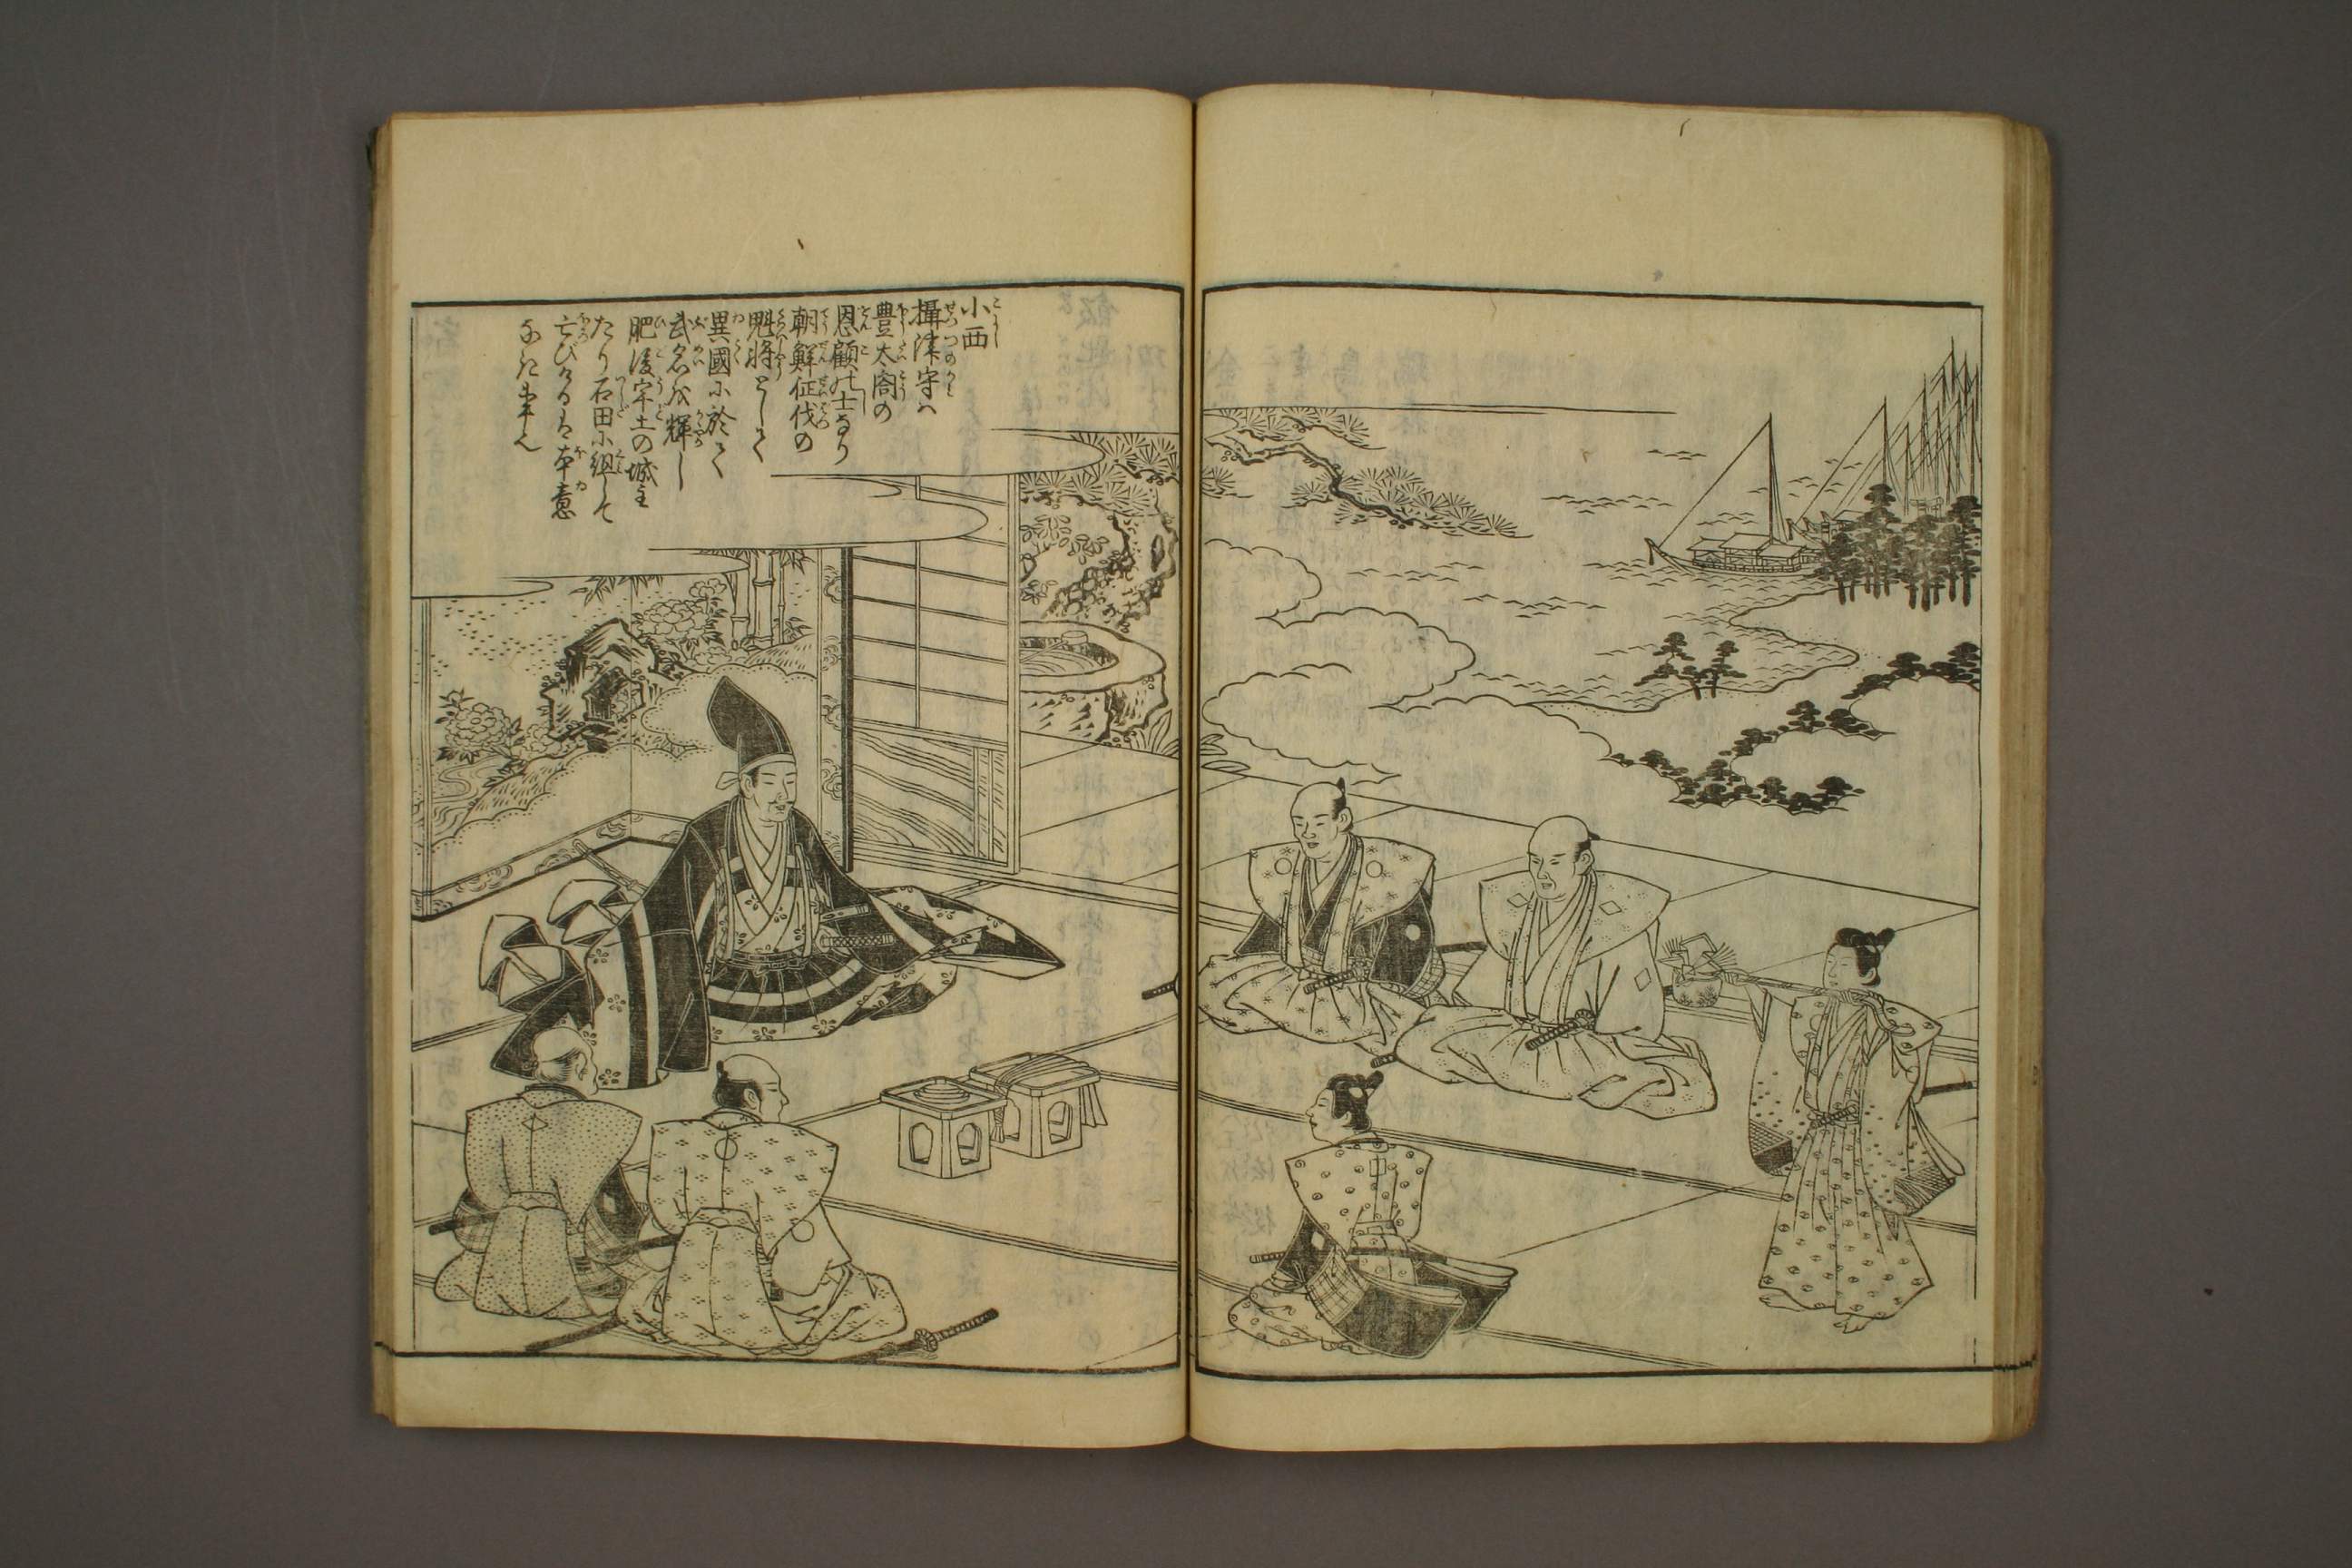 小西
攝津守ハ
豊太閤の
恩顧の士なり
朝鮮征伐の
魁将として
異國に於て
武名を輝し
肥後宇土の城主
たり石田に組して
亡びけるは本意
なき事也